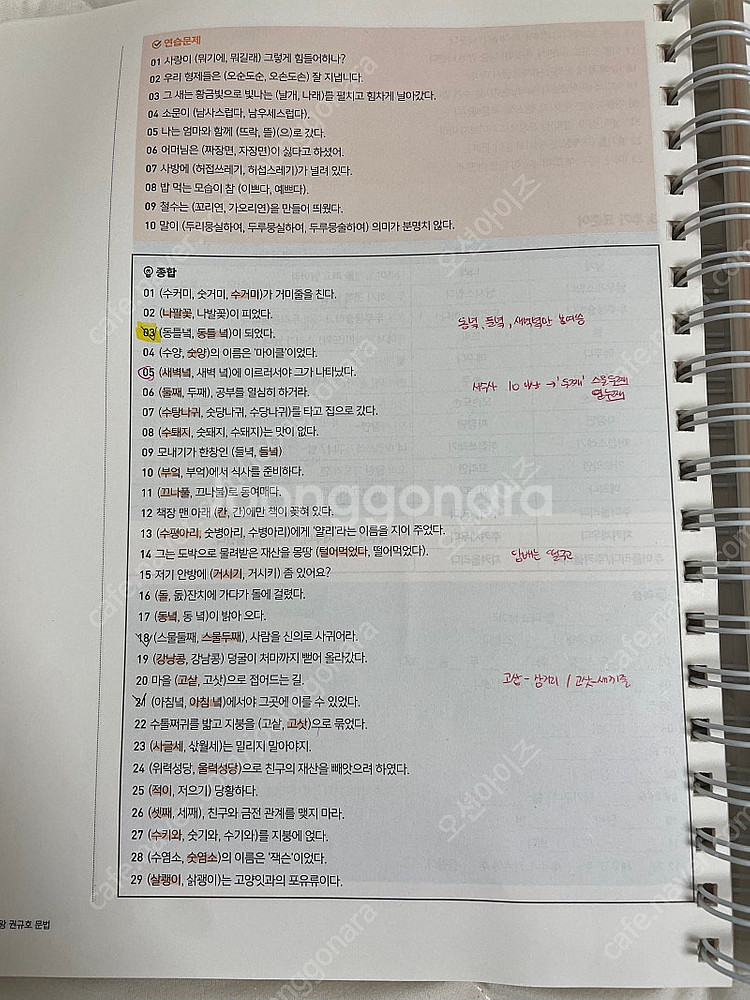 연습문제
01 사랑이 (뭐기에, 뭐길래) 그렇게 힘들어하나?
02 우리 형제들은 (오순도순, 오손도손) 잘 지냅니다.
03 그 새는 황금빛으로 빛나는 (날개, 나래)를 펼치고 힘차게 날아갔다.
04 소문이 (남사스럽다, 남우세스럽다).
05 나는 엄마와 함께 (뜨락, 뜰)(으)로 갔다.
06 어머님은 (짜장면, 자장면)이 싫다고 하셨어.
07 사방에 (허접쓰레기, 허섭스레기)가 널려 있다.
08 밥 먹는 모습이 참 (이쁘다, 예쁘다).
09 철수는 (꼬리연, 가오리연)을 만들어 띄웠다.
10 말이 (두리뭉실하여, 두루뭉실하여, 두루뭉술하여) 의미가 분명치 않다.
종합
01 (수커미, 숫거미, 수거미)가 거미줄을 친다.
02 (나팔꽃, 나발꽃)이 피었다.
03 (동틀녘, 동틀 녘)이 되었다.
동녘, 들녘, 새벽녘만 붙여씀
04 (수양, 숫양)의 이름은 '마이클'이었다.
05 (새벽녘, 새벽 녘)에 이르러서야 그가 나타났다.
06 (둘째, 두째), 공부를 열심히 하거라.
서수사 10 이상 → '두째' 스물두째
열두째
07 (수탕나귀, 숫당나귀, 수당나귀)를 타고 집으로 갔다.
08 (수퇘지, 숫돼지, 수돼지)는 맛이 없다.
09 모내기가 한창인 (들녁, 들녘)
10 (부엌, 부억)에서 식사를 준비하다.
11 (끄나풀, 끄나불)로 동여매다.
12 책장 맨 아래 (칸, 간)에만 책이 꽂혀 있다.
13 (수평아리, 숫병아리, 수병아리)에게 '얄리'라는 이름을 지어 주었다.
14 그는 도박으로 물려받은 재산을 몽땅 (털어먹었다, 떨어먹었다).
담배는 떨구고
15 저기 안방에 (거시기, 거시키) 좀 있어요?
16 (돌, 돐)잔치에 가다가 돌에 걸렸다.
17 (동녘, 동 녘)이 밝아 오다.
18 (스물둘째, 스물두째), 사람을 신의로 사귀어라.
19 (강낭콩, 강남콩) 덩굴이 처마까지 뻗어 올라갔다.
20 마을 (고샅, 고삿)으로 접어드는 길.
21 (아침녘, 아침 녘)에서야 그곳에 이를 수 있었다.
22 수톨쩌귀를 밟고 지붕을 (고샅, 고삿)으로 묶었다.
23 (사글세, 삯월세)는 밀리지 말아야지.
24 (위력성당, 울력성당)으로 친구의 재산을 빼앗으려 하였다.
25 (적이, 저으기) 당황하다.
26 (셋째, 세째), 친구와 금전 관계를 맺지 마라.
27 (수키와, 숫기와, 수기와)를 지붕에 얹다.
28 (수염소, 숫염소)의 이름은 '잭슨'이었다.
29 (살쾡이, 삵괭이)는 고양잇과의 포유류이다.
왕 권규호 문법